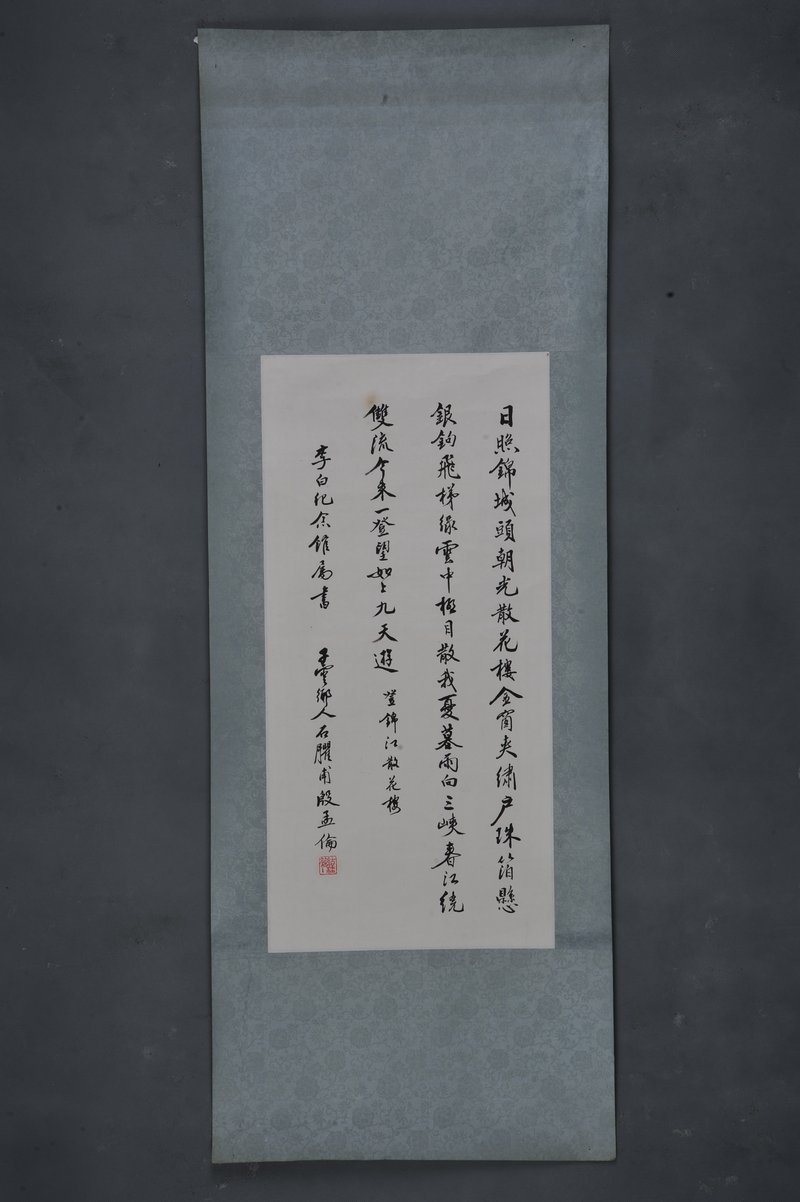 日照錦城頭朝光散花樓金窗夾繡户珠箔懸
銀鈎飛梯緑雲中極目散我憂暮雨向三峽春江繞
雙流今来一登望如上九天遊 登錦江散花樓
李白纪念館属書 子雲鄉人石臞甫殷孟倫